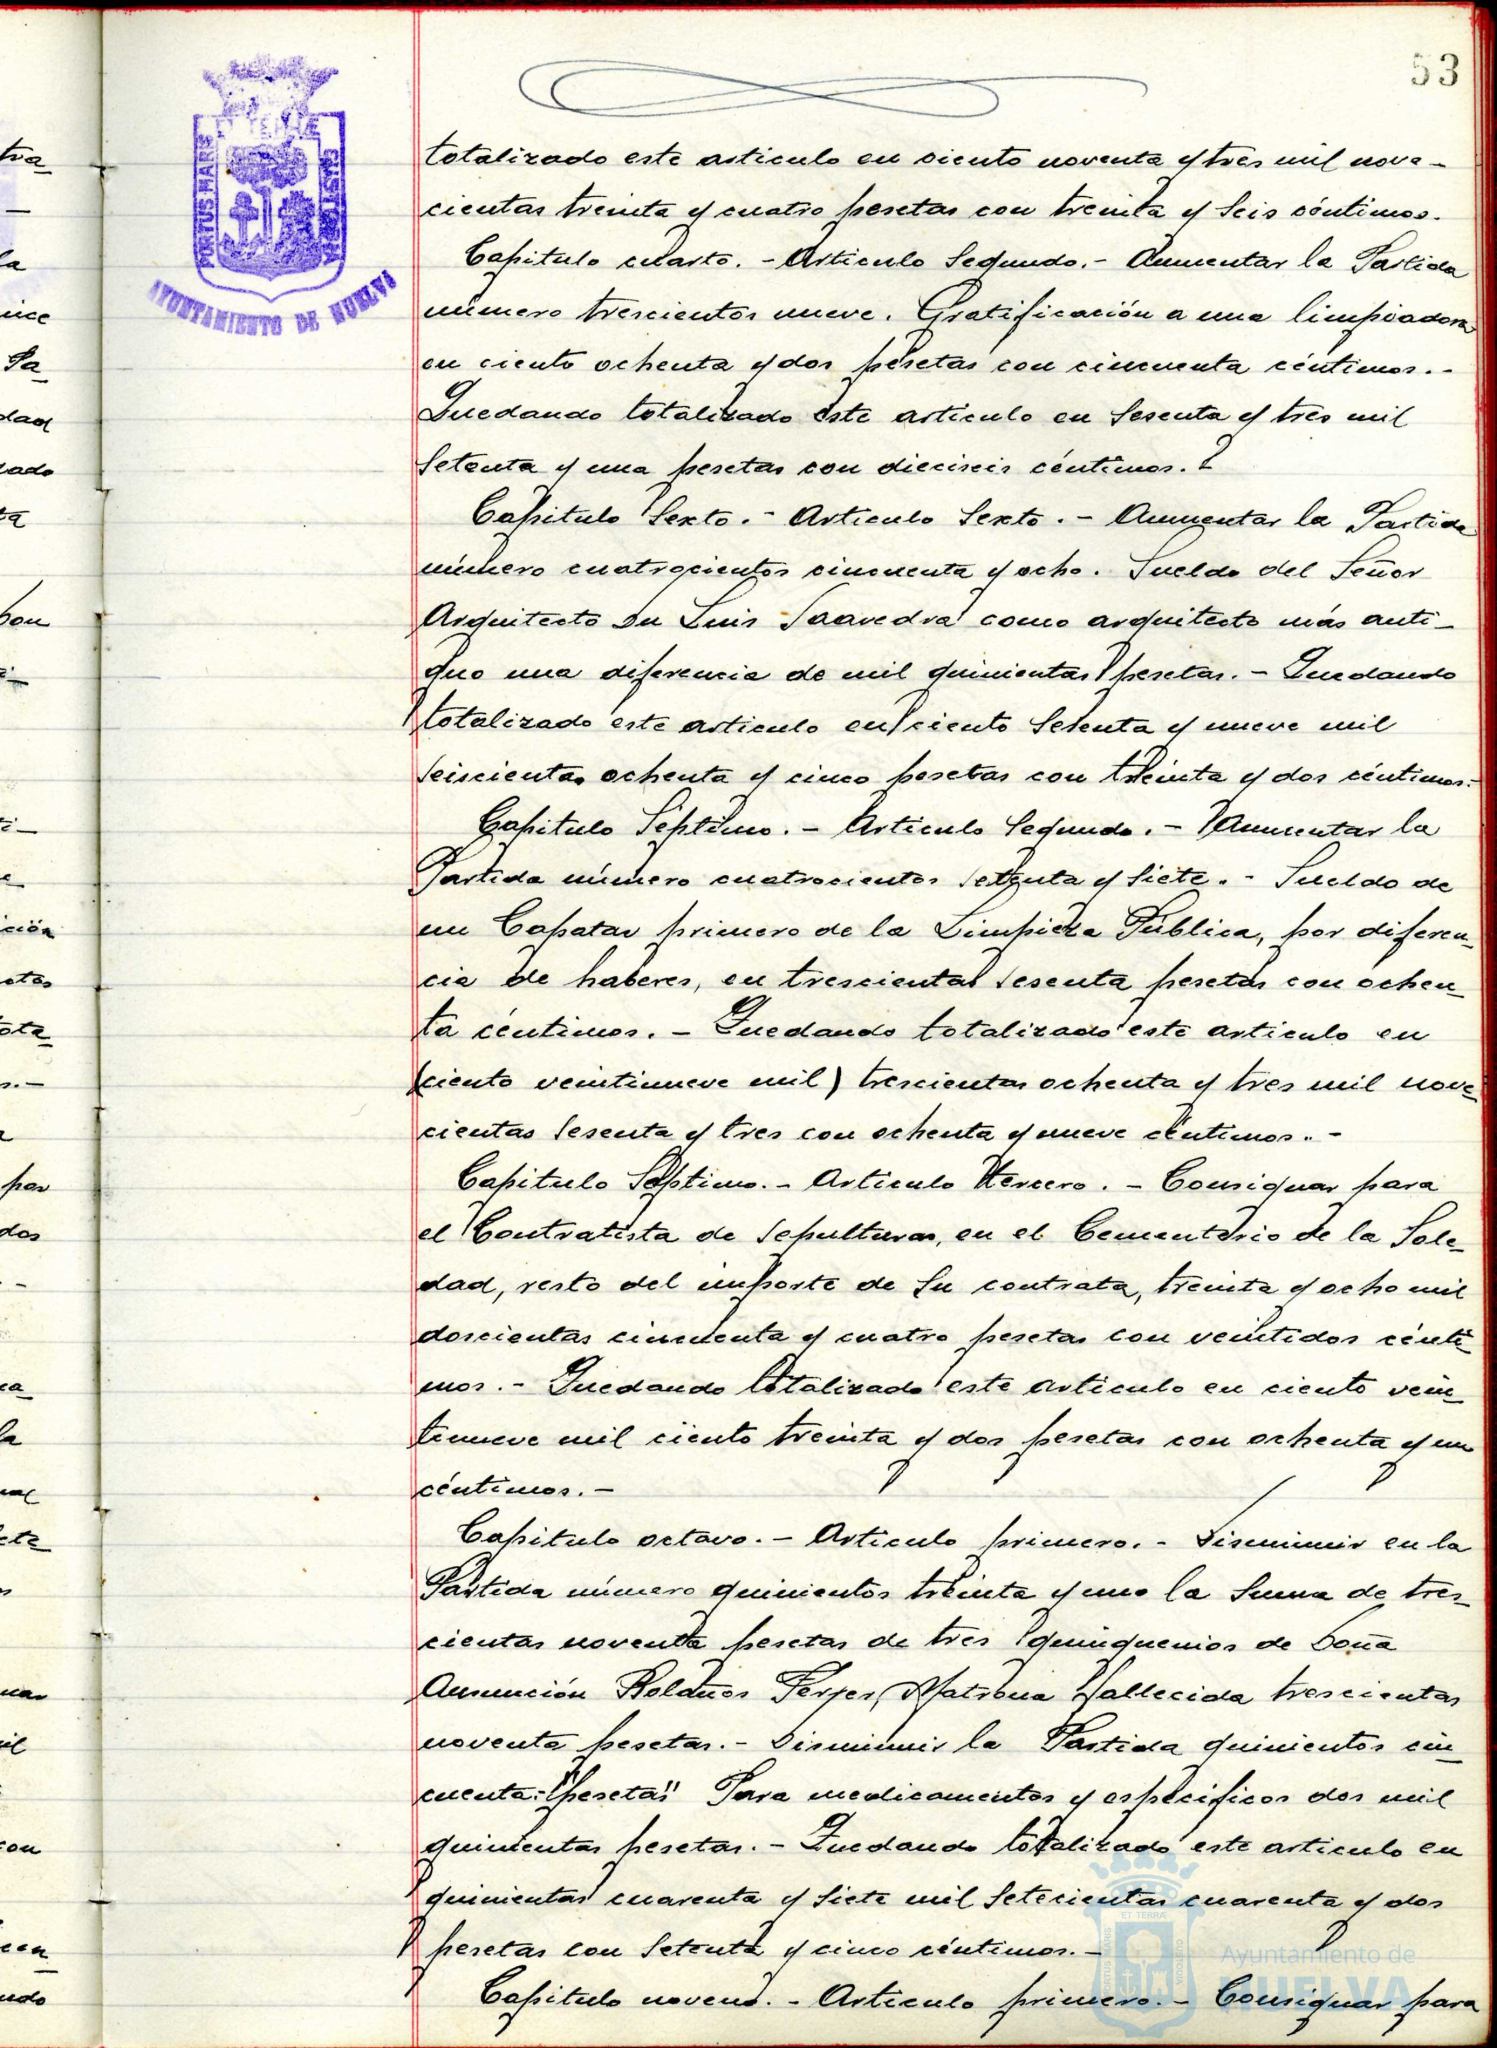 53
PORTUS MARIS
ET TERRAE
CUSTODIA
AYUNTAMIENTO DE HUELVA
totalizado este articulo en ciento noventa y tres mil nove-
cientas treinta y cuatro pesetas con treinta y seis céntimos.
Capitulo cuarto. - Articulo Segundo. - Aumentar la Partida
número trescientos nueve. Gratificación a una limpiadora
en ciento ochenta y dos pesetas con cincuenta céntimos. -
Quedando totalizado este articulo en Sesenta y tres mil
Setenta y una pesetas con dieciseis céntimos.
Capitulo Sexto. - Articulo Sexto. - Aumentar la Partida
número cuatrocientos cincuenta y ocho. Sueldo del Señor
Arquitecto Dn Luis Saavedra como arquitecto más anti-
guo una diferencia de mil quinientas pesetas. - Quedando
totalizado este articulo en ciento Setenta y nueve mil
Seiscientas ochenta y cinco pesetas con treinta y dos céntimos.-
Capitulo Séptimo. - Articulo Segundo. - Aumentar la
Partida número cuatrocientos setenta y siete. - Sueldo de
un Capataz primero de la Limpieza Pública, por diferen-
cia de haberes, en trescientas sesenta pesetas con ochen-
ta céntimos. - Quedando totalizado este articulo en
(ciento veintinueve mil) trescientas ochenta y tres mil nove-
cientas sesenta y tres con ochenta y nueve céntimos. -
Capitulo Séptimo. - Articulo tercero. - Consignar para
el Contratista de Sepulturas, en el Cementerio de la Sole-
dad, resto del importe de Su contrata, treinta y ocho mil
doscientas cincuenta y cuatro pesetas con veintidos cénti-
mos. - Quedando totalizado este articulo en ciento vein-
tinueve mil ciento treinta y dos pesetas con ochenta y un
céntimos. -
Capitulo octavo. - Articulo primero. - Disminuir en la
Partida número quinientos treinta y uno la Suma de tres-
cientas noventa pesetas de tres quinquenios de Doña
Asunción Bolaños Ferrer, Matrona fallecida trescientas
noventa pesetas. - Disminuir la Partida quinientos cin-
cuenta: "peseta" Para medicamentos y especificos dos mil
quinientas pesetas. - Quedando totalizado este articulo en
quinientas cuarenta y siete mil Setecientas cuarenta y dos
pesetas con Setenta y cinco céntimos. -
Capitulo noveno. - Articulo primero. - Consignar para
Ayuntamiento de
HUELVA